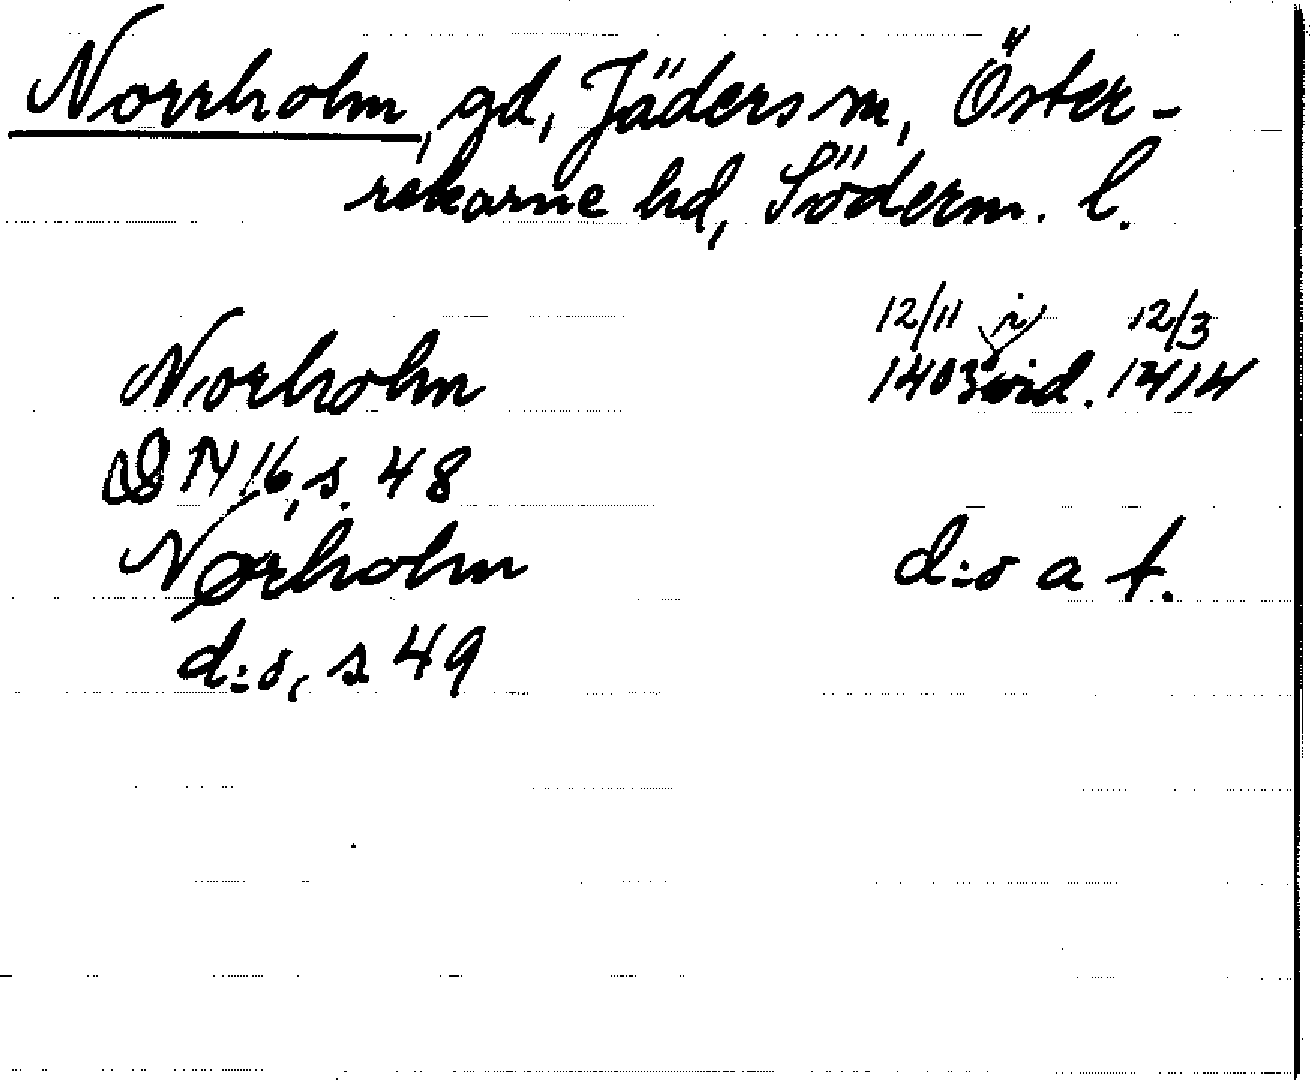 Norrholm, gd, Jäders sn, Öster-
rekarne hd, Söderm. l.
12/11 i 12/3
Norholm 1403 vid. 1414
D 1416, s. 48
Norholm d:o a t.
d:o, s 49